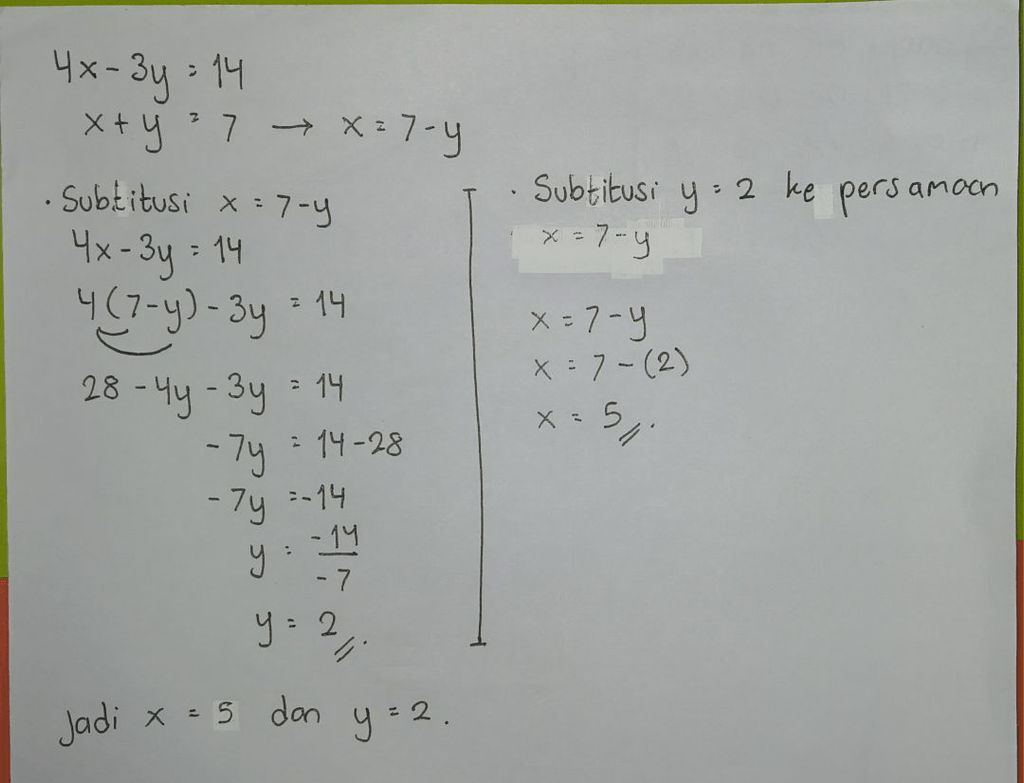 4x - 3y = 14
x + y = 7 → x = 7 - y
• Subtitusi x = 7 - y
4x - 3y = 14
4(7 - y) - 3y = 14
28 - 4y - 3y = 14
- 7y = 14 - 28
- 7y = -14
y = -14/-7
y = 2 //.
• Subtitusi y = 2 ke persamaan
x = 7 - y
x = 7 - y
x = 7 - (2)
x = 5 //.
Jadi x = 5 dan y = 2.